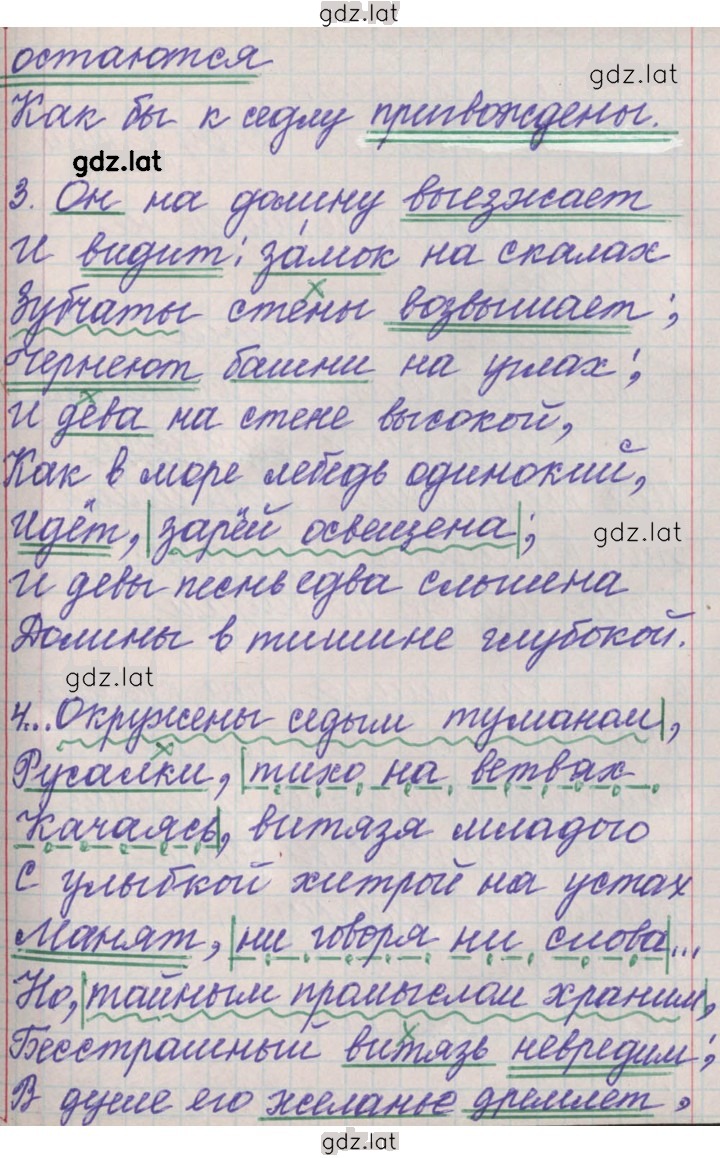 gdz.lat
остаются
gdz.lat
Как бы к седлу пригвождены.
gdz.lat
3. Он на долину выезжает
И видит: за́мок на скалах
Зубчаты стены возвышает;
Чернеют башни на углах;
И дева на стене высокой,
Как в море лебедь одинокий,
Идёт, зарёй освещена;
gdz.lat
И девы песнь едва слышна
Долины в тишине глубокой.
gdz.lat
4...Окружены седым туманом,
Русалки, тихо на ветвях
Качаясь, витязя младого
С улыбкой хитрой на устах
Манят, ни говоря ни слова...
Но, тайным промыслом храним,
Бесстрашный витязь невредим;
В душе его желанье дремлет,
gdz.lat